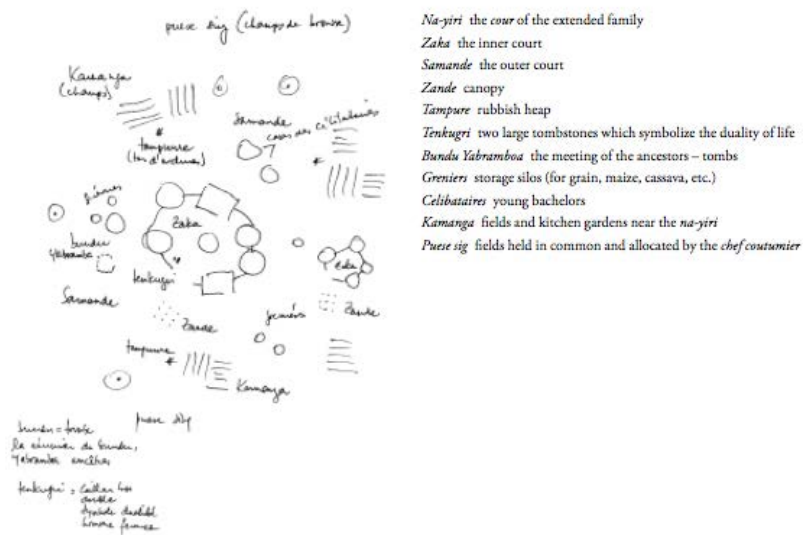 puese sig (champs de brousse)
Kamanga
(champs)
Samande
cases des célibataires
tampure
(tas d'ordures)
greniers
Zaka
bundu
Yabramba
tenkugri
Zaka
Samande
Zande
greniers
Zande
tampure
Kamanga
puese sig
bundu = tombe
la réunion du bundu,
Yabramba ancêtres
tenkugri =
double
symbole dualité
homme femme
Na-yiri the cour of the extended family
Zaka the inner court
Samande the outer court
Zande canopy
Tampure rubbish heap
Tenkugri two large tombstones which symbolize the duality of life
Bundu Yabramboa the meeting of the ancestors – tombs
Greniers storage silos (for grain, maize, cassava, etc.)
Celibataires young bachelors
Kamanga fields and kitchen gardens near the na-yiri
Puese sig fields held in common and allocated by the chef coutumier